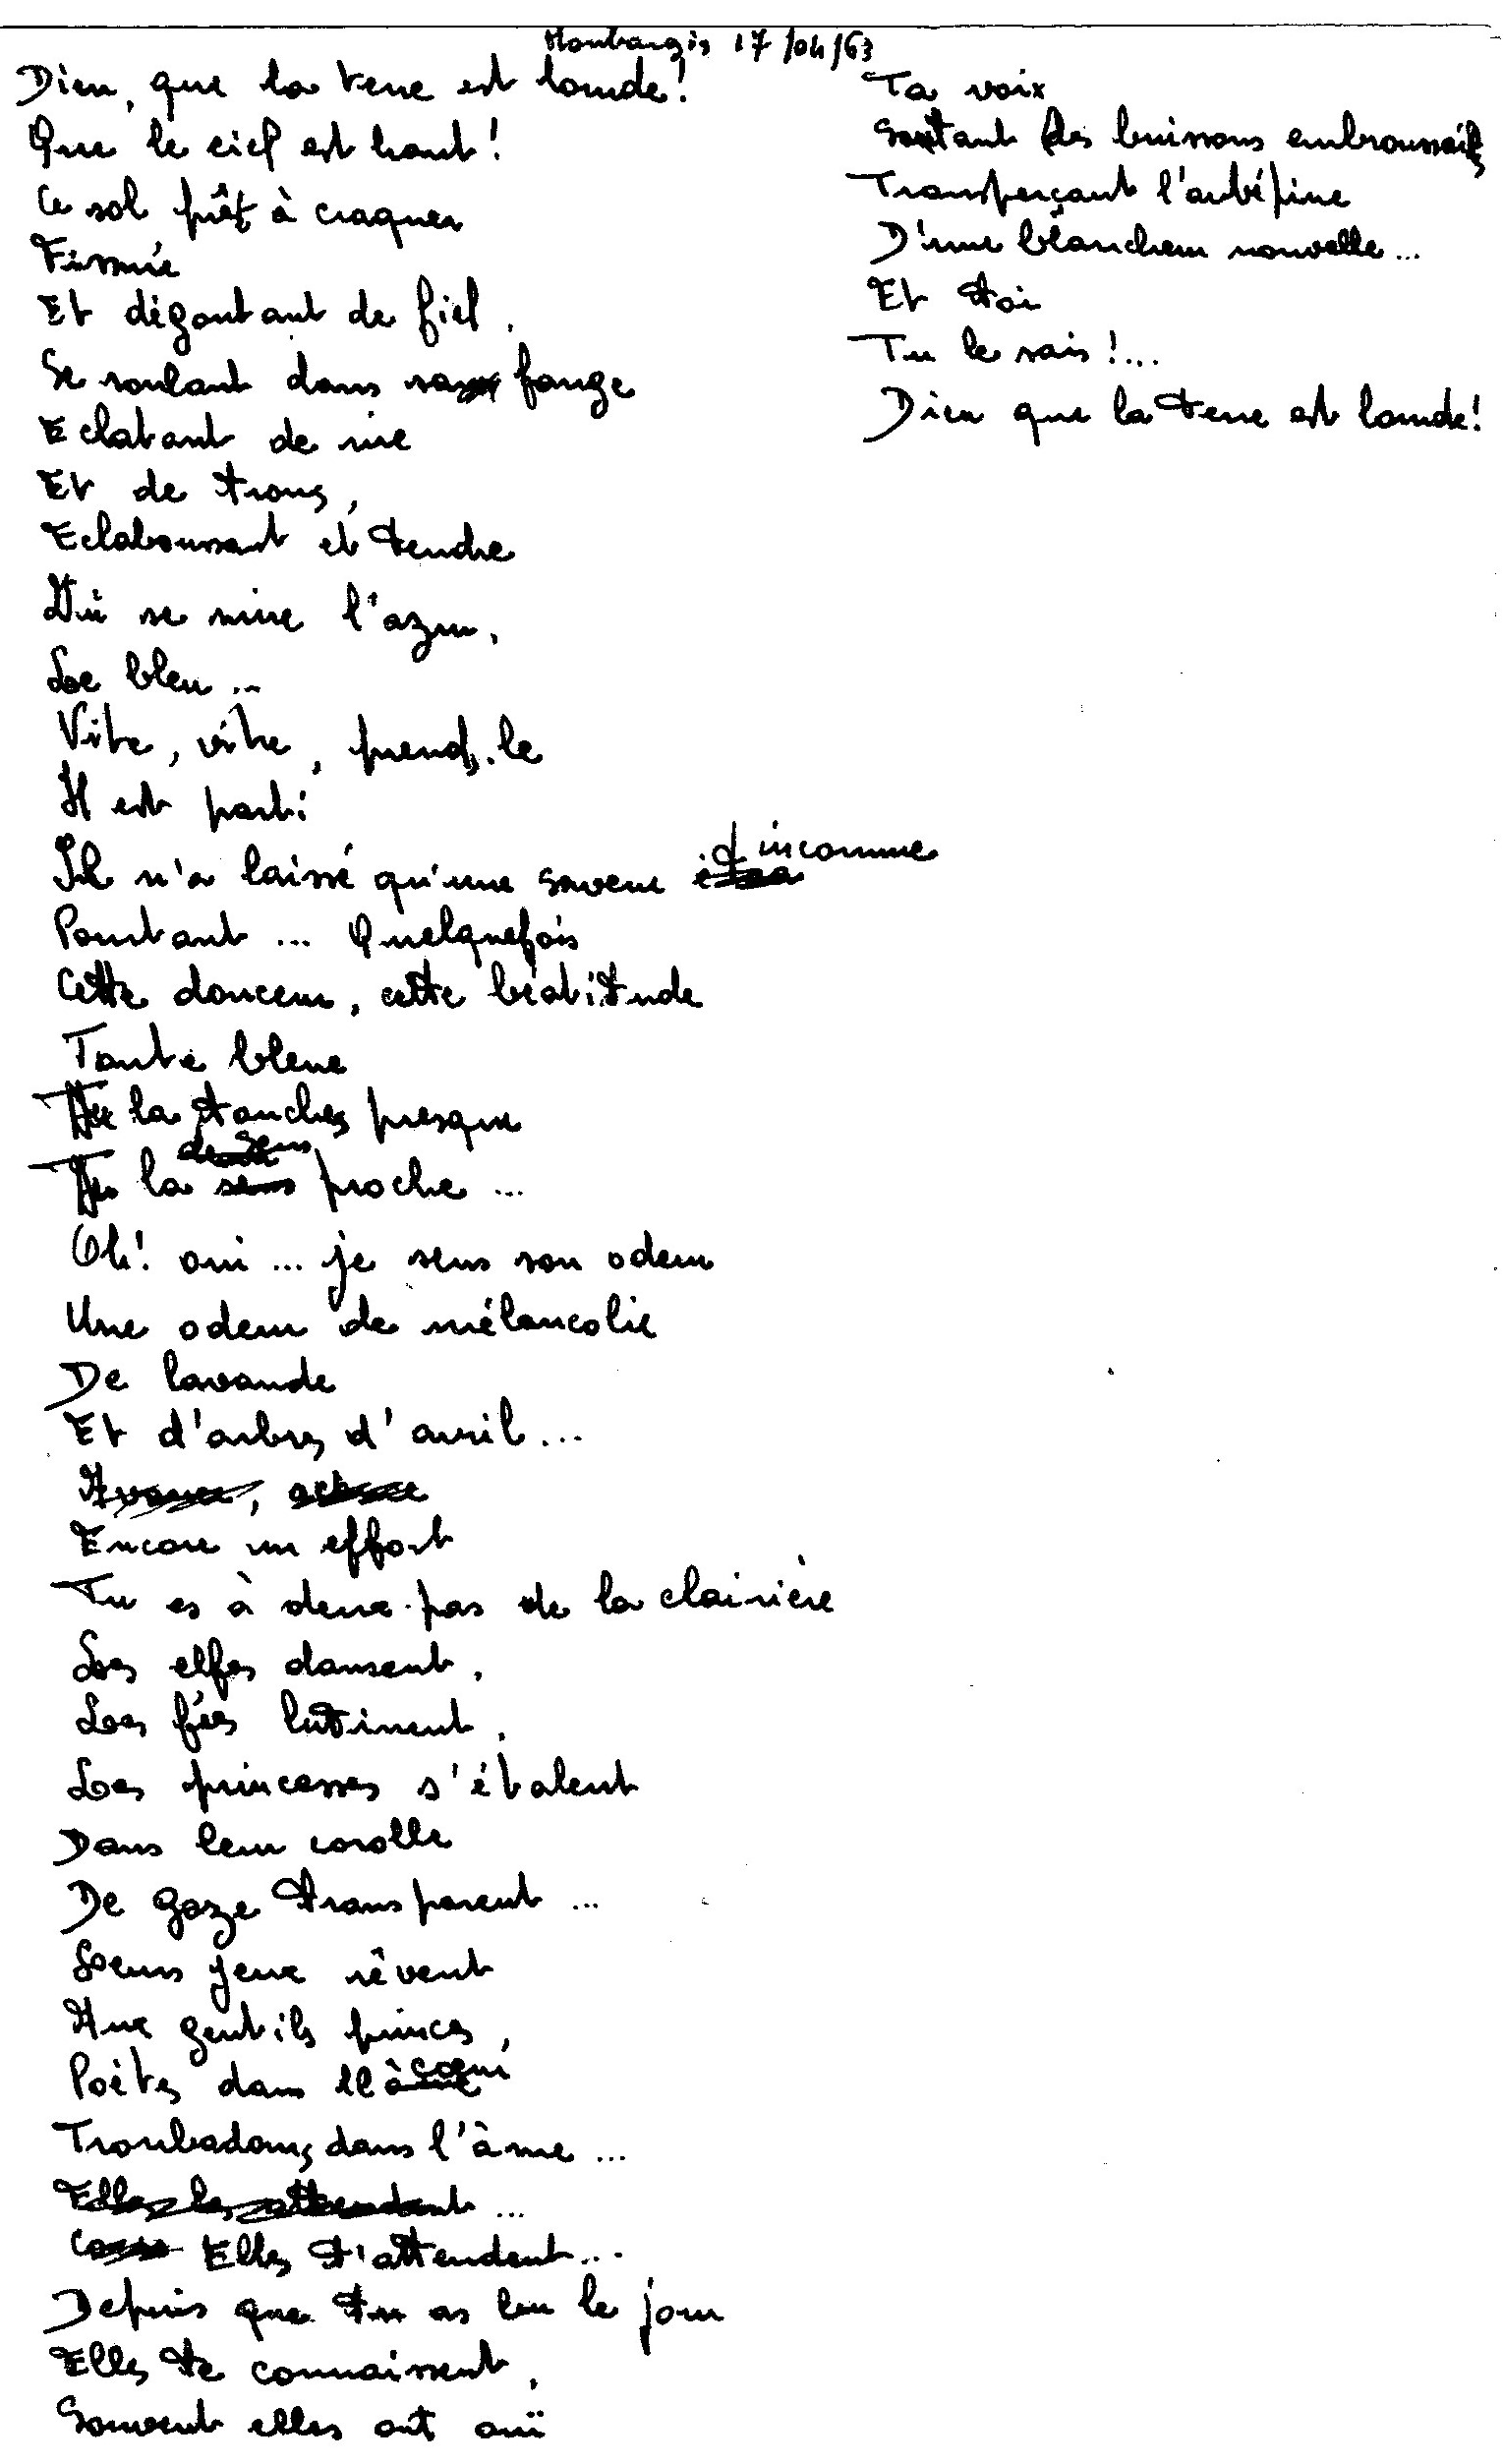 Montargis 17/04/63
Dieu, que la terre est lourde!
Que le ciel est haut!
Ce sol prêt à craquer
Fissuré
Et dégoutant de fiel,
Se roulant dans sa fange
Eclatant de rire
Et de trous,
Eclaboussant et tendre
Où se mire l'azur,
Le bleu...
Vite, vite, prends-le
Il est parti
Il n'a laissé qu'une saveur inconnue
Pourtant... Quelquefois
Cette douceur, cette béatitude
Toute bleue
Tu la touches presque
Tu la sens proche...
Oh! oui... je sens son odeur
Une odeur de mélancolie
De lavande
Et d'arbres d'avril...
Avance,
Encore un effort
Tu es à deux pas de la clairière
Les elfes dansent,
Les fées lutinent,
Les princesses s'étalent
Dans leur corolle
De gaze transparent...
Leurs yeux rêvent
Aux gentils princes,
Poètes dans le coeur
Troubadours dans l'âme...
Elles les attendent...
Elles t'attendent...
Depuis que tu as vu le jour
Elles te connaissent,
Souvent elles ont ouï
Ta voix
Sortant des buissons embroussaillés
Transperçant l'aubépine
D'une blancheur nouvelle...
Et toi
Tu le sais!...
Dieu que la terre est lourde!